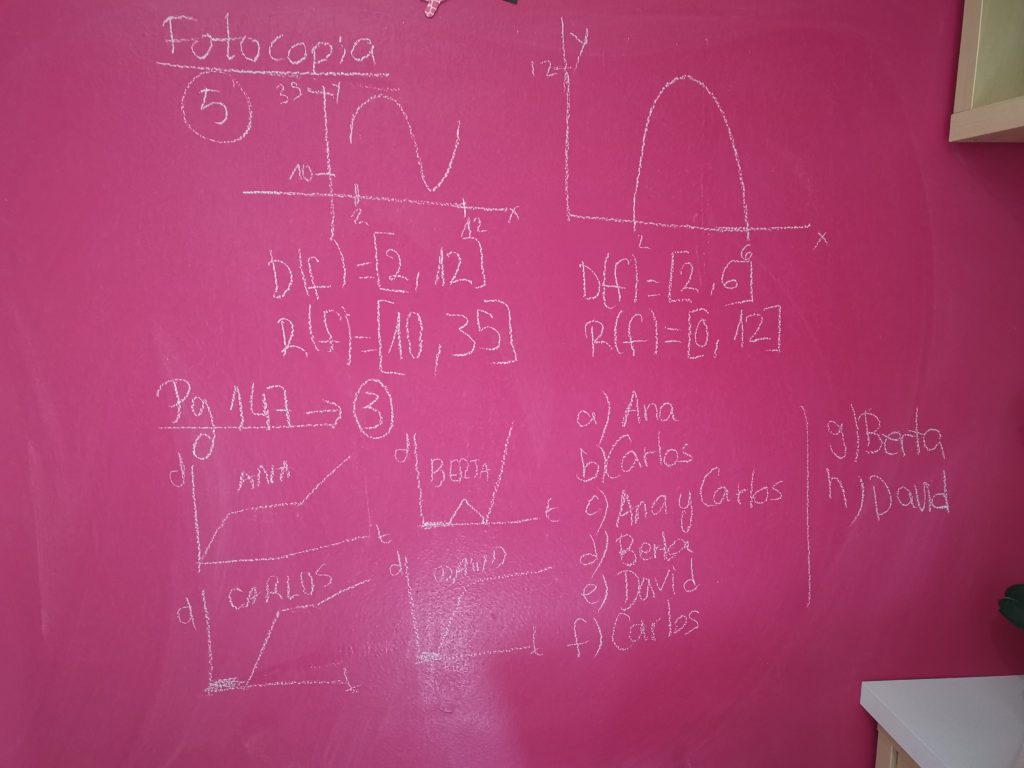 Fotocopia
5
35 y
10
2
12
x
D(f)=[2,12]
R(f)=[10,35]
y
12
2
6
x
D(f)=[2,6]
R(f)=[0,12]
Pg 147 → 3
d ANA t
d BERTA t
d CARLOS t
d DAVID t
a) Ana
b) Carlos
c) Ana y Carlos
d) Berta
e) David
f) Carlos
g) Berta
h) David